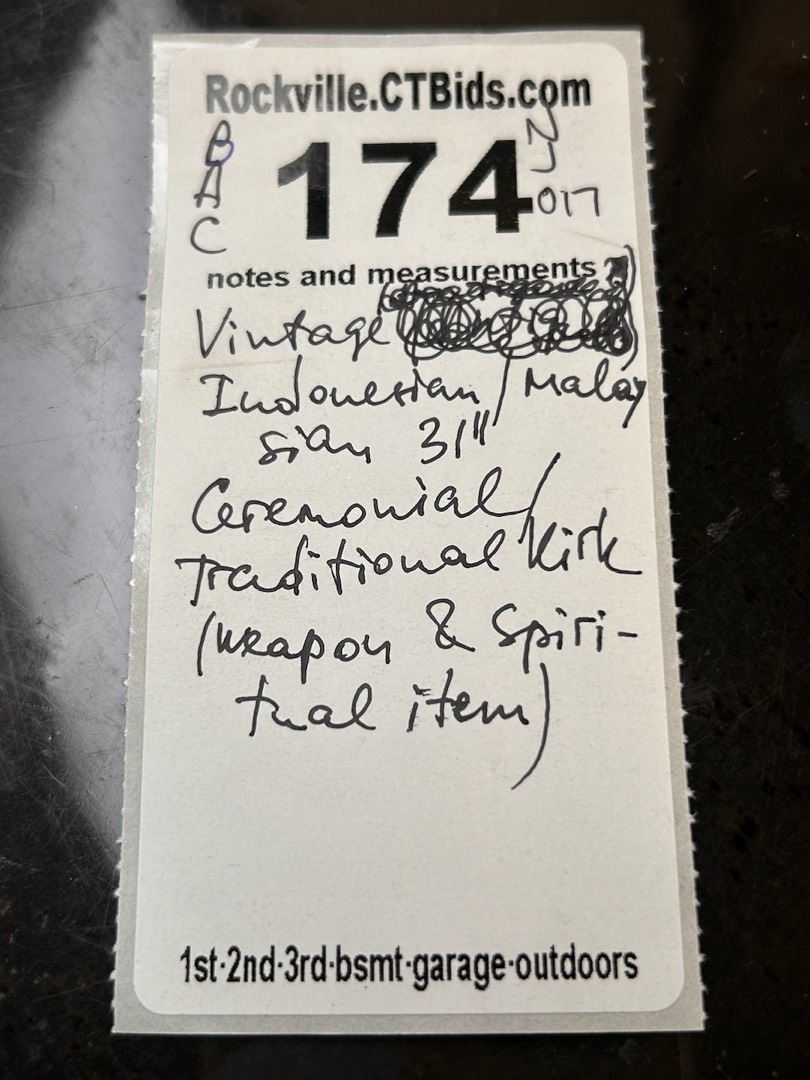 Rockville.CTBids.com
B
A
C
174
NJ
017
notes and measurements
Vintage
Indonesian / Malay
sian 31"
Ceremonial/
Traditional Kirk
(weapon & Spiri-
tual item)
1st·2nd·3rd·bsmt·garage·outdoors